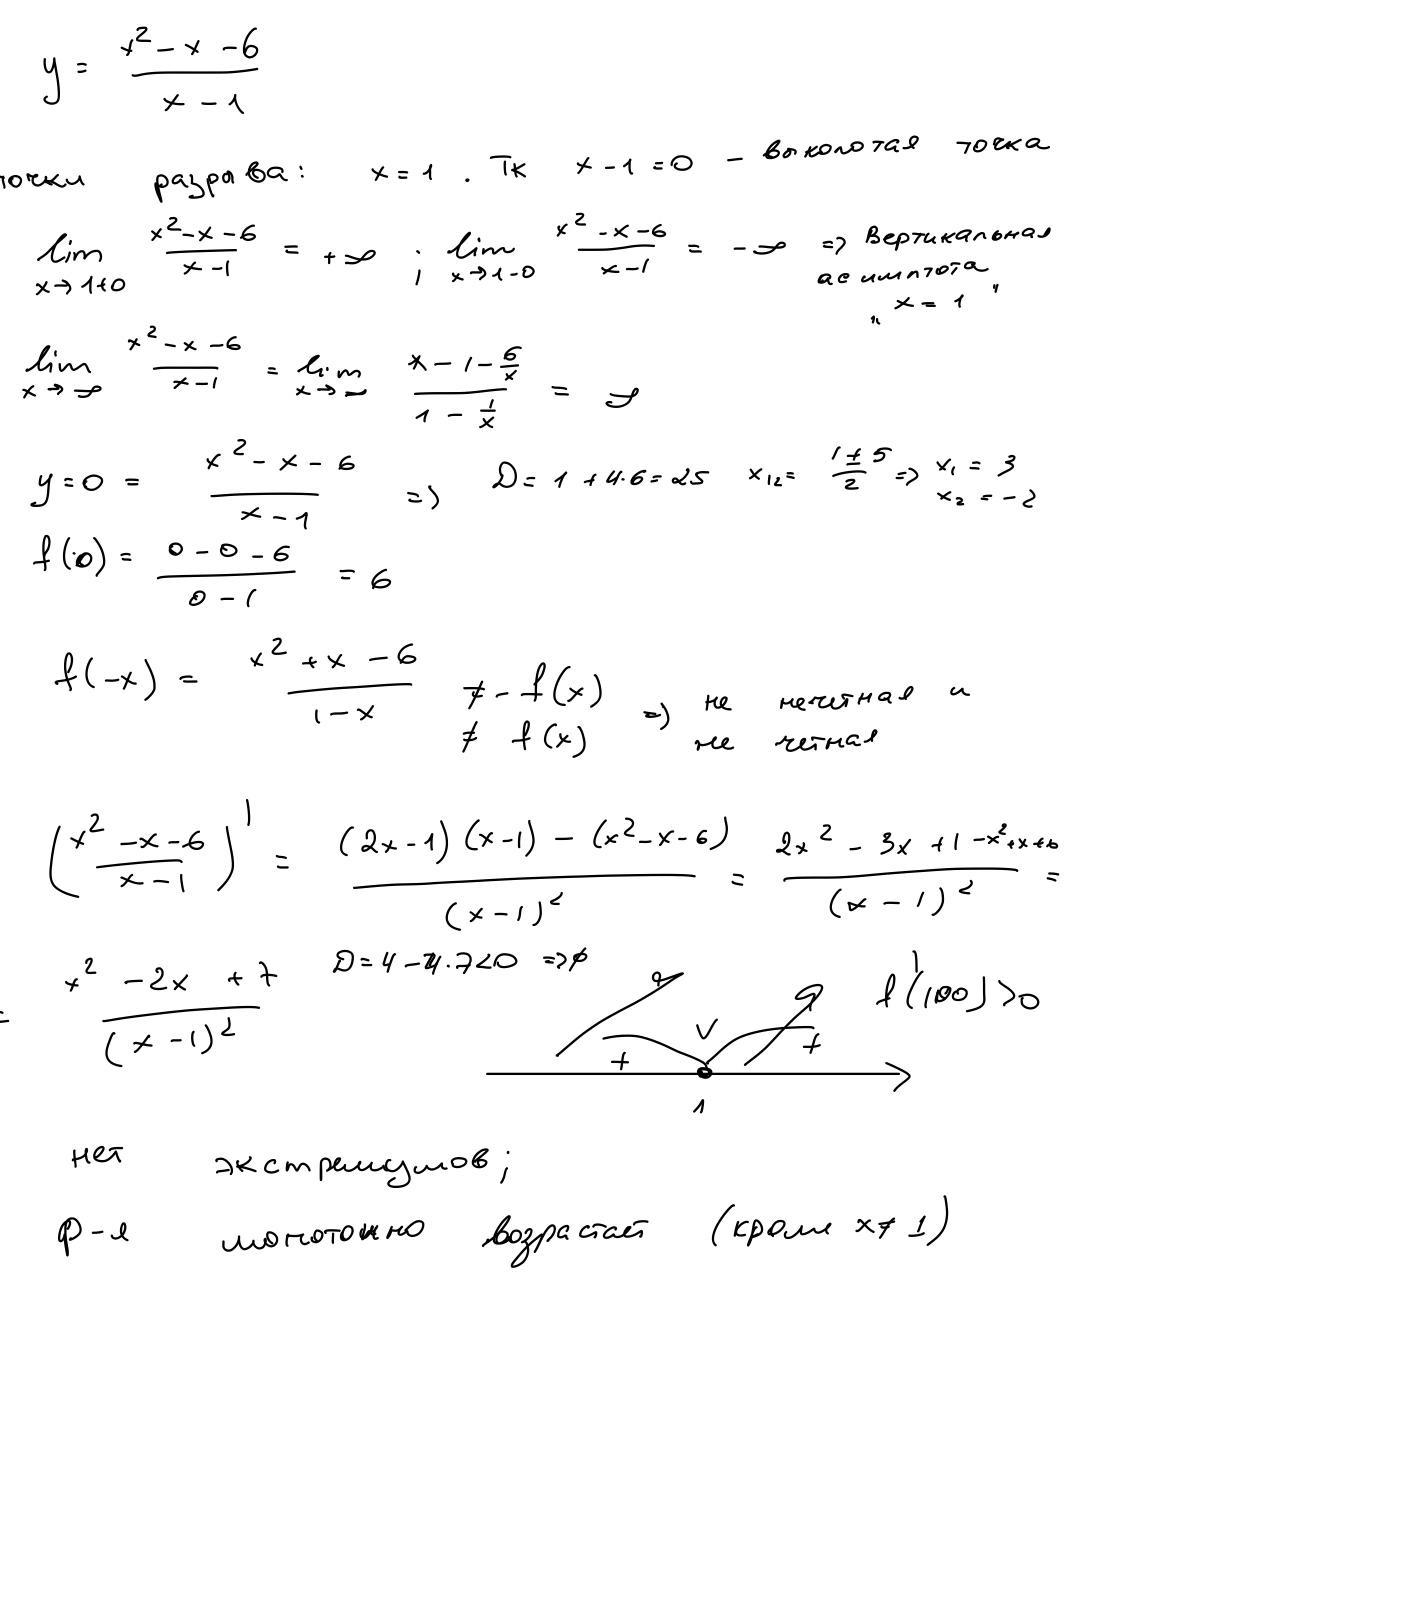 y = (x² - x - 6)/(x - 1)
точки разрыва: x = 1 . Тк x - 1 = 0 - выколотая точка
lim x→1+0 (x² - x - 6)/(x - 1) = +∞ ; lim x→1-0 (x² - x - 6)/(x - 1) = -∞ => Вертикальная
асимптота
„ x = 1 "
lim x→∞ (x² - x - 6)/(x - 1) = lim x→∞ (x - 1 - 6/x)/(1 - 1/x) = ∞
y = 0 = (x² - x - 6)/(x - 1) => D = 1 + 4·6 = 25 x₁₂ = (1 ± 5)/2 => x₁ = 3
x₂ = -2
f(0) = (0 - 0 - 6)/(0 - 1) = 6
f(-x) = (x² + x - 6)/(1 - x) ≠ - f(x) => не нечётная и
≠ f(x) не чётная
((x² - x - 6)/(x - 1))' = ((2x - 1)(x - 1) - (x² - x - 6))/(x - 1)² = (2x² - 3x + 1 - x² + x + 6)/(x - 1)² =
= (x² - 2x + 7)/(x - 1)² D = 4 - 4·7 < 0 => ∅ f'(100) > 0
+ V +
1
нет экстремумов;
ф-я монотонно возрастает (кроме x ≠ 1)